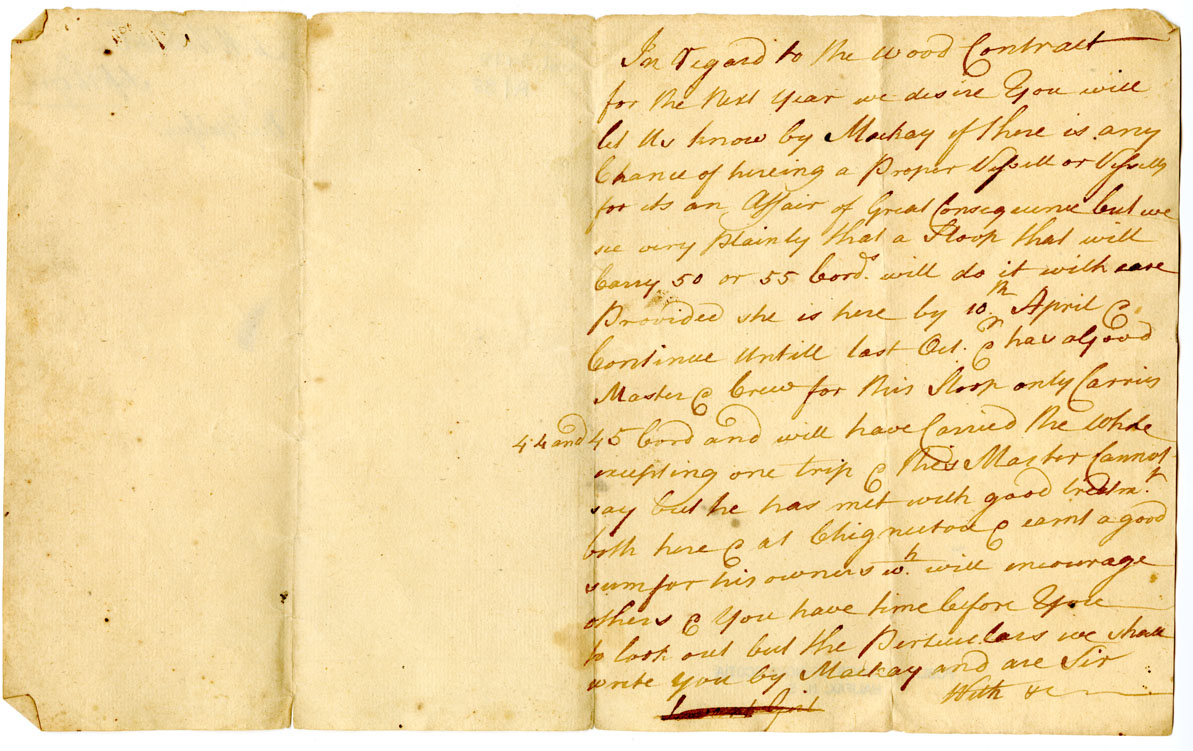 In regard to the wood Contract
for the next Year we desire You will
let Us know by Mackay if there is any
Chance of hireing a Proper Vessell or Vessells
for its an Affair of Great Consequence but we
see very plainly that a Sloop that will
Carry 50 or 55 Cords. will do it with ease
Provided she is here by 10th April &
Continue Untill last Oct. & has a Good
Master & Crew for this Sloop only Carries
44 and 45 Cord and will have Carried the whole
excepting one trip & this Master Cannot
say but he has met with good treatmt
both here & at Chignectou & earnt a good
sum for his owners wh. will encourage
others & You have time before You
to look out but the Perticulars we shall
write you by Mackay and are Sir
With &c